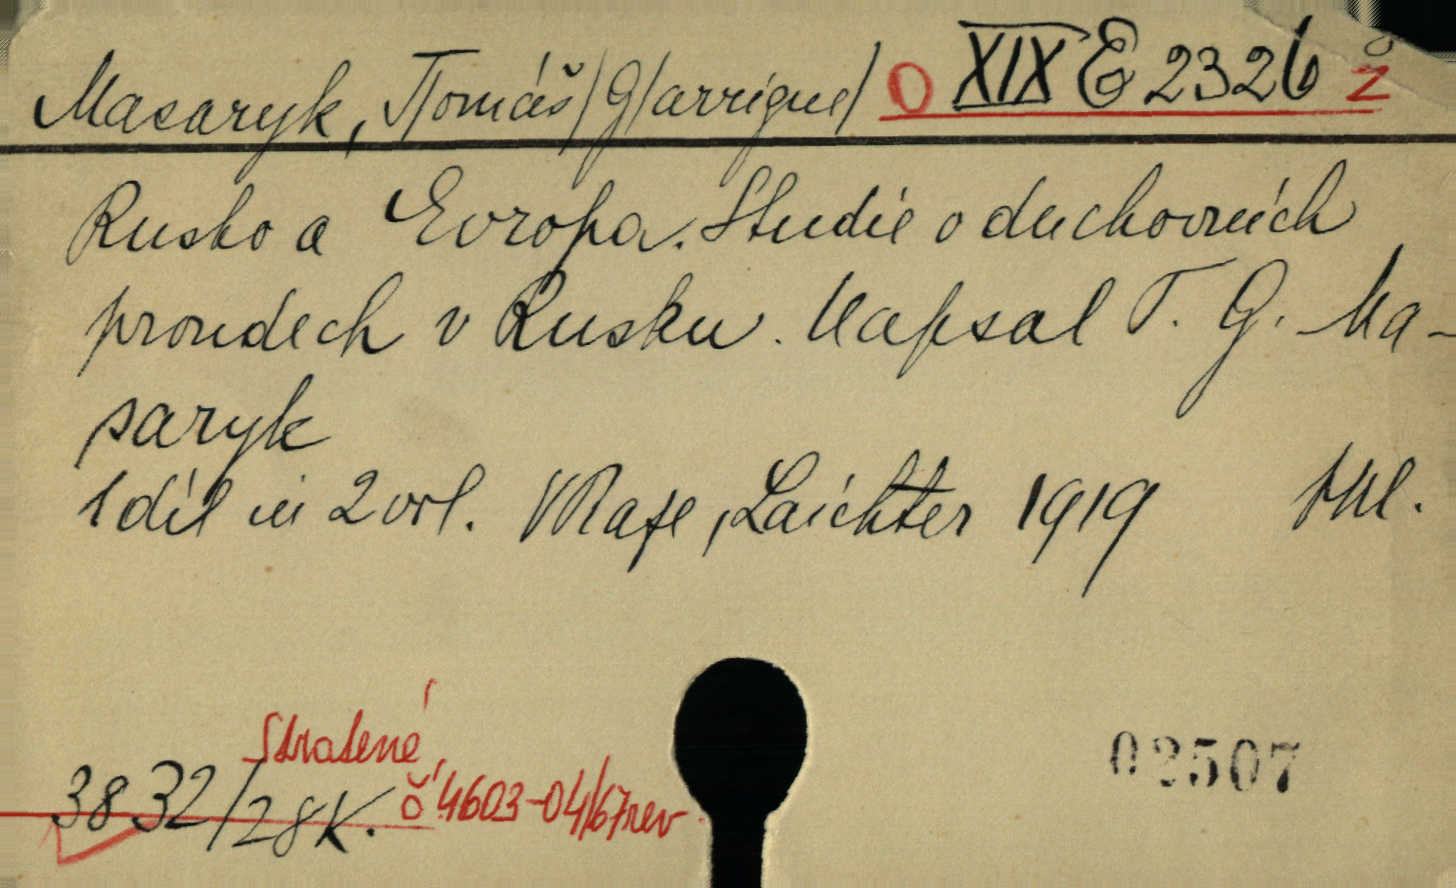 Masaryk, Tomáš/G/arrigue/ O XIX E 2326 Ž
Rusko a Evropa. Studie o duchovních
proudech v Rusku. Napsal T. G. Ma-
saryk
1 díl in 2 vol. V Praze, Laichter 1919
Stratené,
3832/28K. č. 4603-04/67 rev
02507